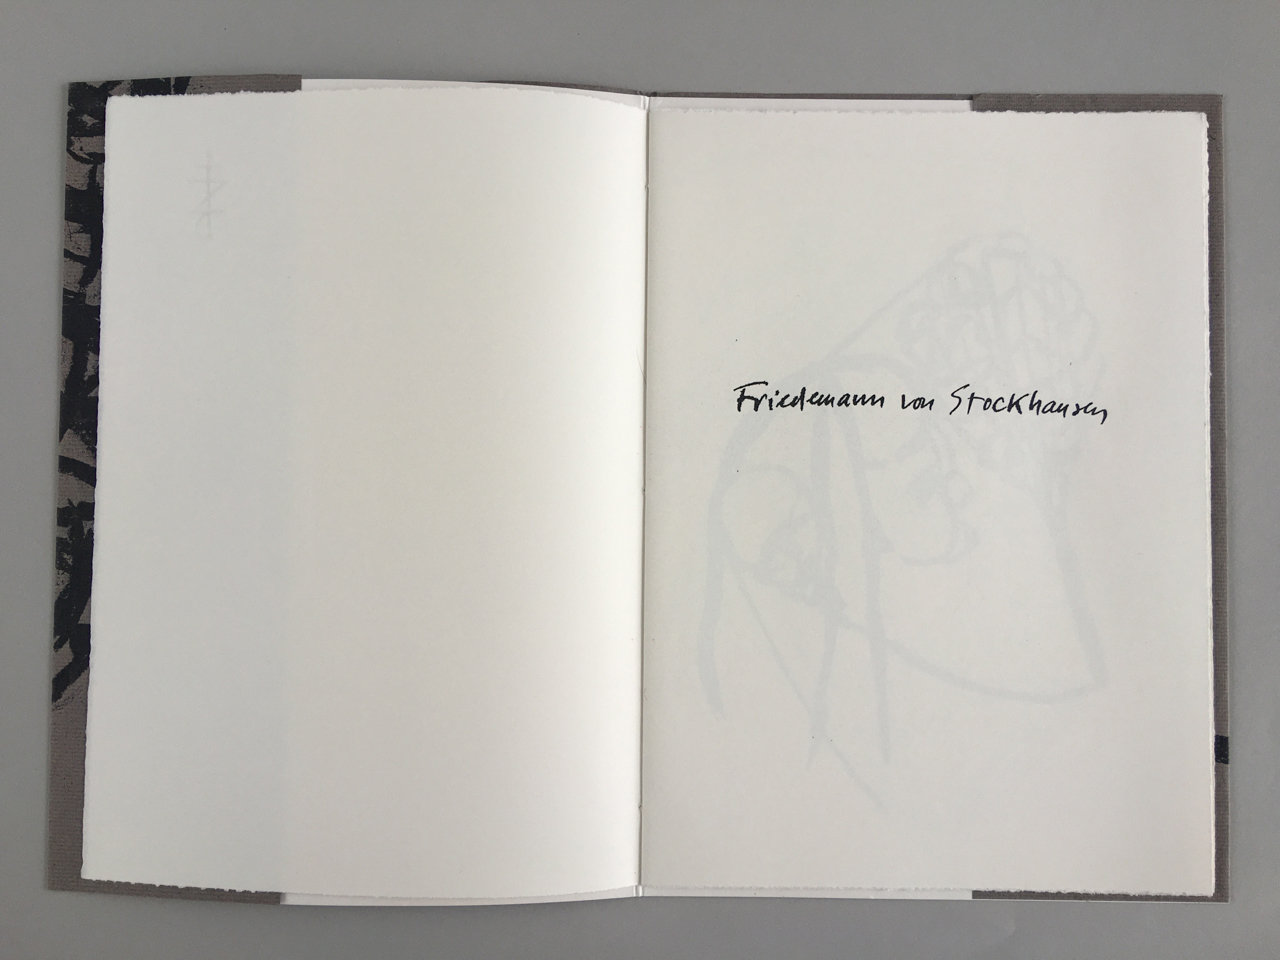 Friedemann von Stockhausen